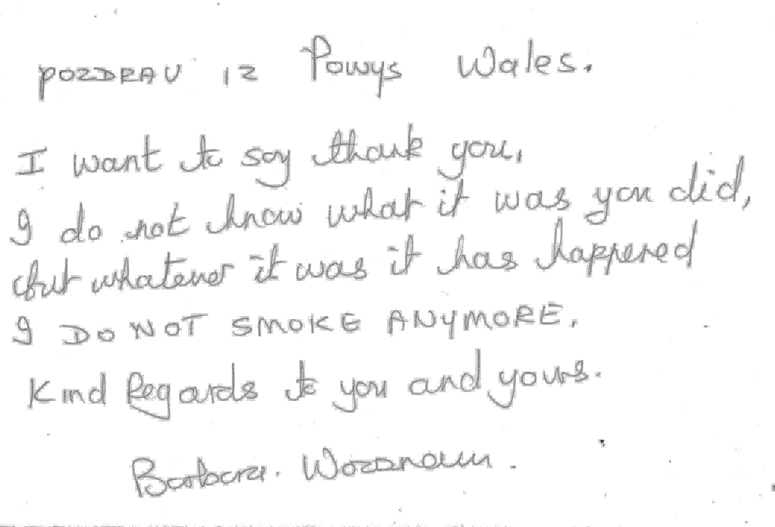 POZDRAV IZ Powys Wales.
I want to say thank you,
I do not know what it was you did,
but whatever it was it has happened
I DO NOT SMOKE ANYMORE.
Kind Regards to you and yours.
Barbara.